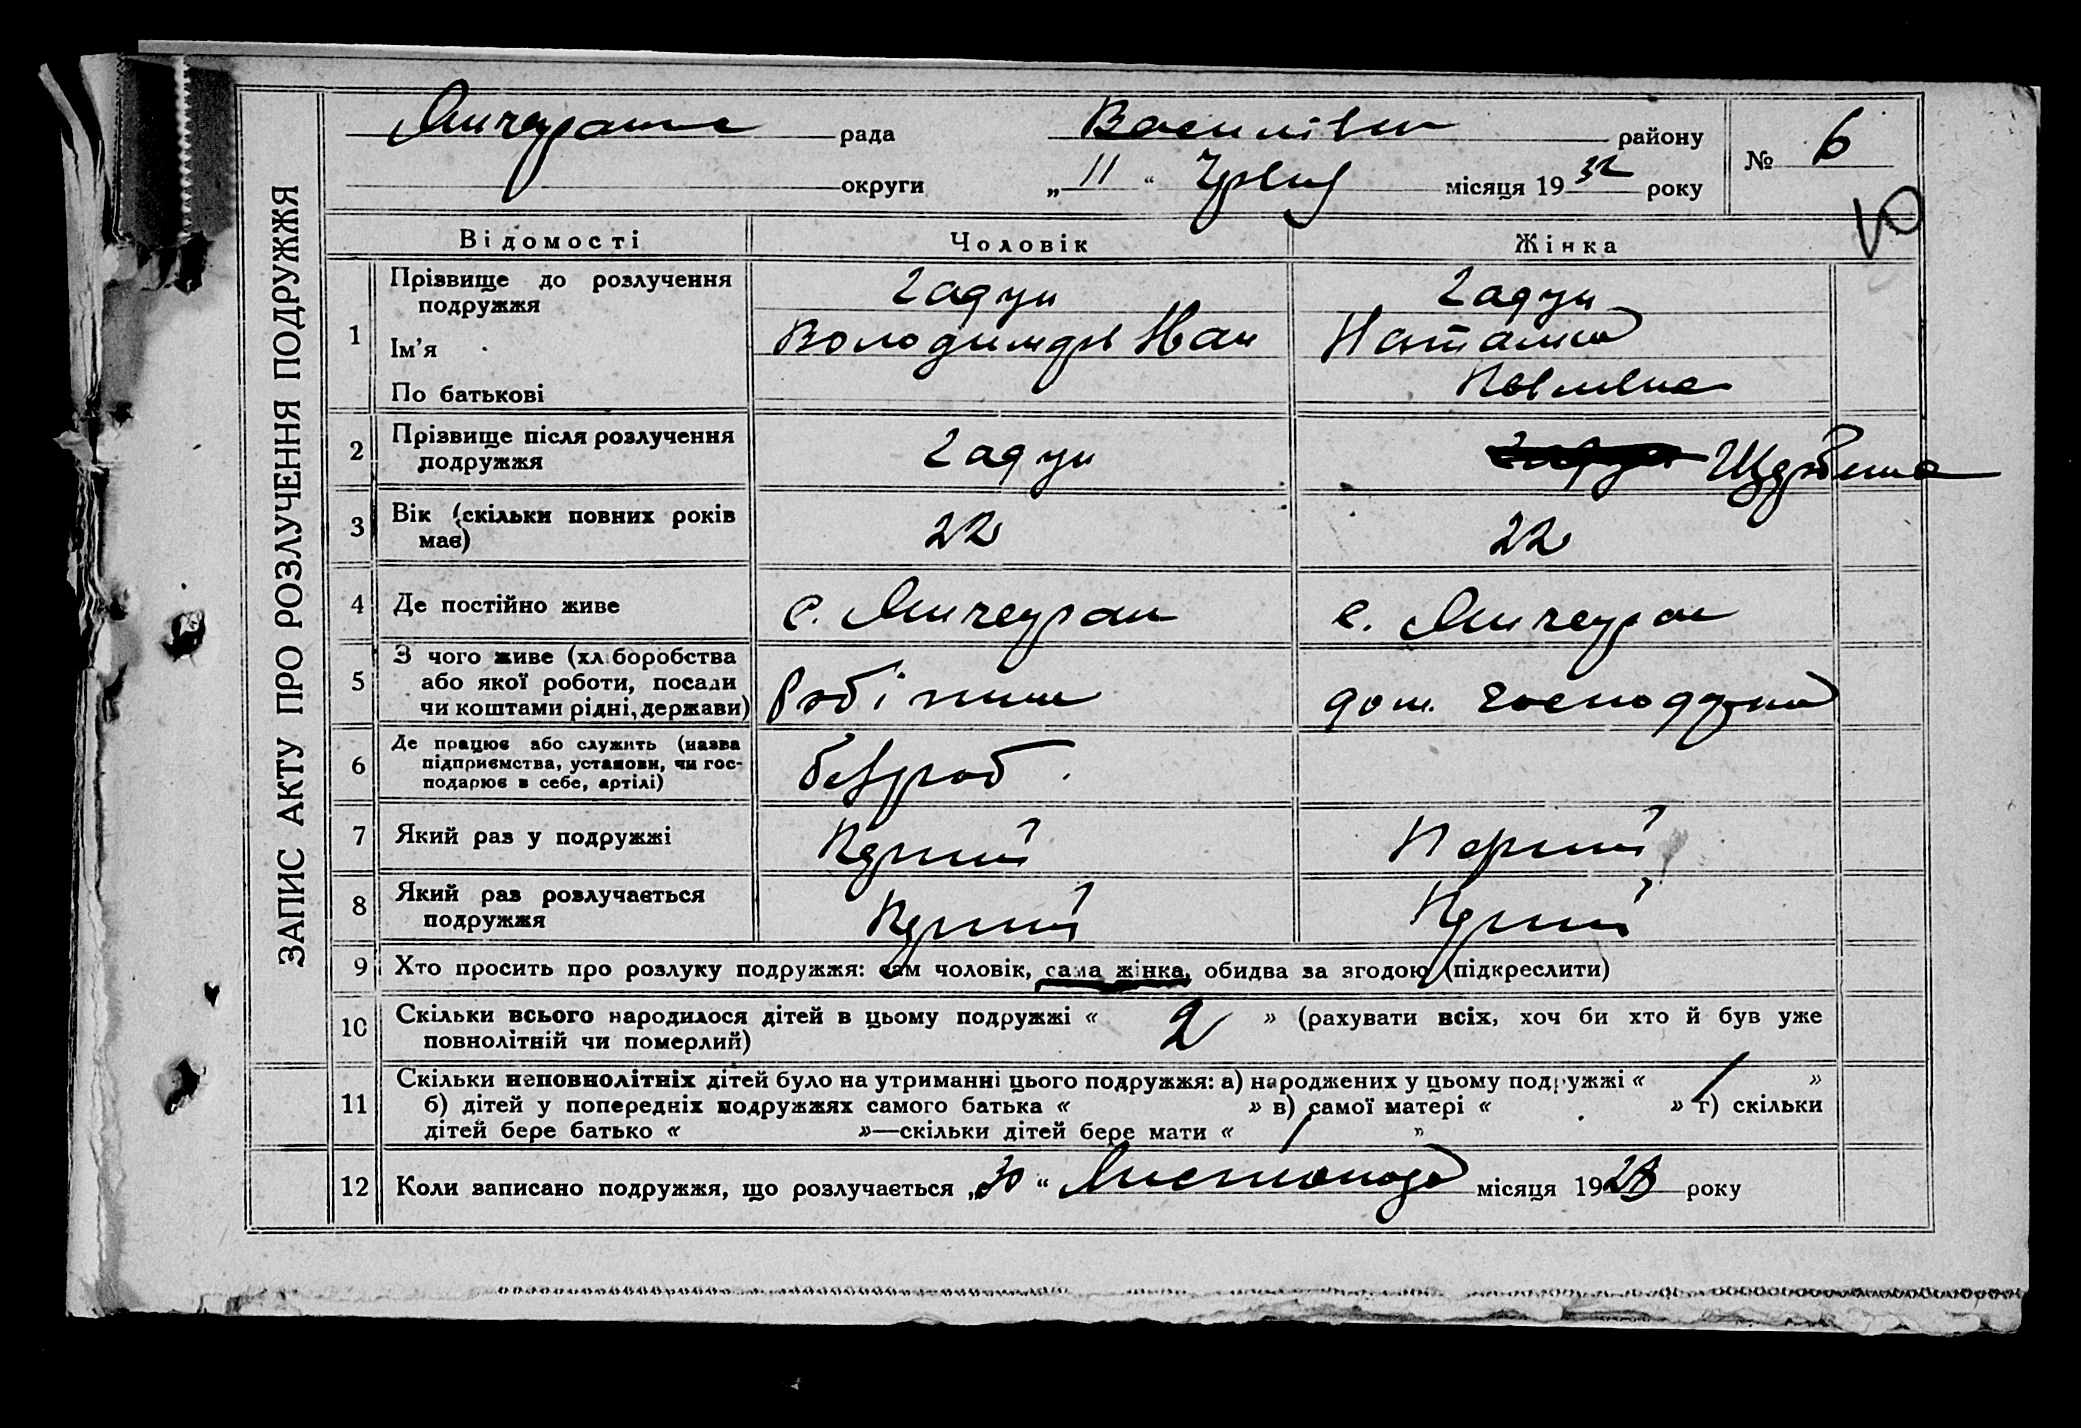 ЗАПИС АКТУ ПРО РОЗЛУЧЕННЯ ПОДРУЖЖЯ
рада
району
№ 6
округи „ 11 “ місяця 19 32 року
Відомості Чоловік Жінка
1 Прізвище до розлучення подружжя Гадун Гадун
Ім'я Володимир Іван Наталия
По батькові Павливна
2 Прізвище після розлучення подружжя Гадун
3 Вік (скільки повних років має) 22 22
4 Де постійно живе с. с.
5 З чого живе (хліборобства або якої роботи, посади чи коштами рідні, держави) Робітник дом. господарка
6 Де працює або служить (назва підприємства, установи, чи господарює в себе, артілі) безроб.
7 Який раз у подружжі Перший Перший
8 Який раз розлучається подружжя Перший Перший
9 Хто просить про розлуку подружжя: сам чоловік, сама жінка, обидва за згодою (підкреслити)
10 Скільки всього народилося дітей в цьому подружжі « 2 » (рахувати всіх, хоч би хто й був уже
повнолітній чи померлий)
11 Скільки неповнолітніх дітей було на утриманні цього подружжя: а) народжених у цьому подружжі « 1 »
б) дітей у попередніх подружжях самого батька « » в) самої матері « » г) скільки
дітей бере батько « »—скільки дітей бере мати « 1 »
12 Коли записано подружжя, що розлучається „ 30 “ Листопада місяця 19 28 року